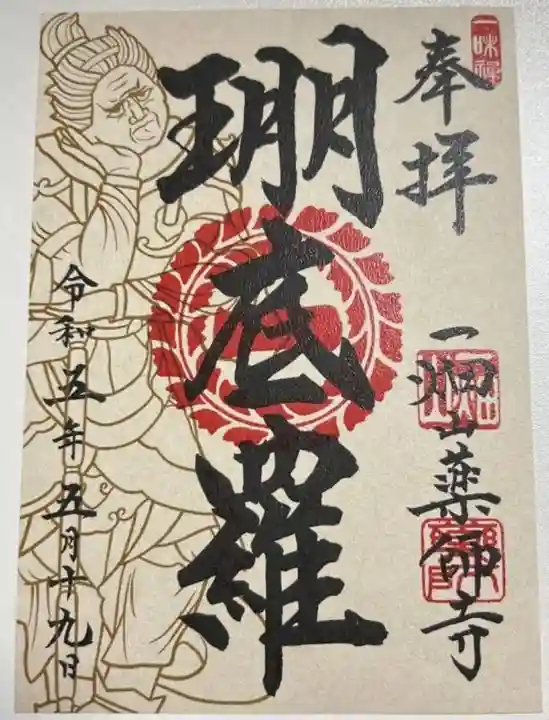 一味禪
奉拝
一畑山薬師寺
珊底羅
令和五年五月十九日